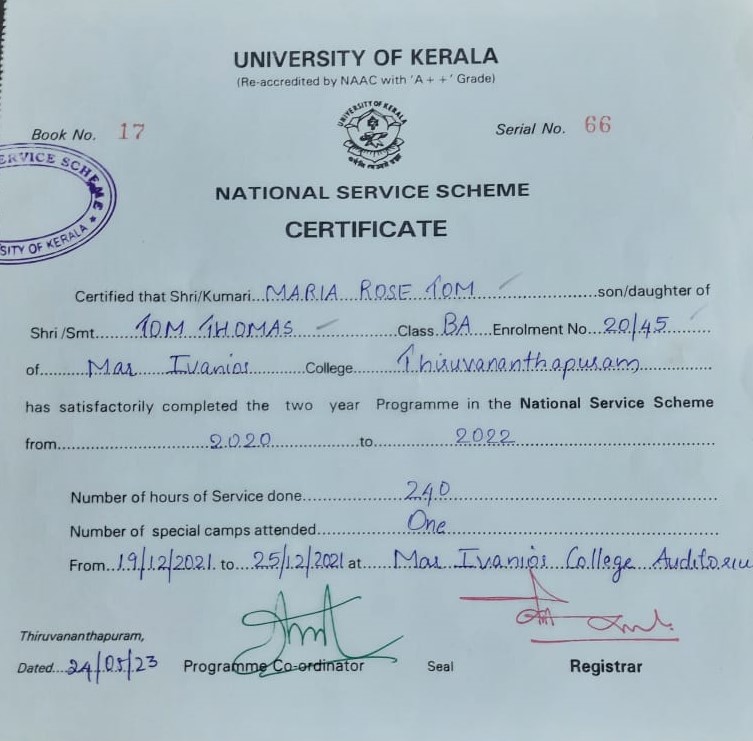 UNIVERSITY OF KERALA
(Re-accredited by NAAC with 'A + +' Grade)
UNIVERSITY OF KERALA
Book No. 17
Serial No. 66
SERVICE SCHEME
SITY OF KERALA
NATIONAL SERVICE SCHEME
CERTIFICATE
Certified that Shri/Kumari...MARIA ROSE TOM...son/daughter of
Shri /Smt...TOM THOMAS...Class BA...Enrolment No...20/45
of...Mar Ivanios...College...Thiruvananthapuram...
has satisfactorily completed the two year Programme in the National Service Scheme
from...2020...to...2022...
Number of hours of Service done...240...
Number of special camps attended...One...
From...19/12/2021...to...25/12/2021 at...Mar Ivanios College Auditorium
Thiruvananthapuram,
Dated...24/05/23
Programme Co-ordinator
Seal
Registrar